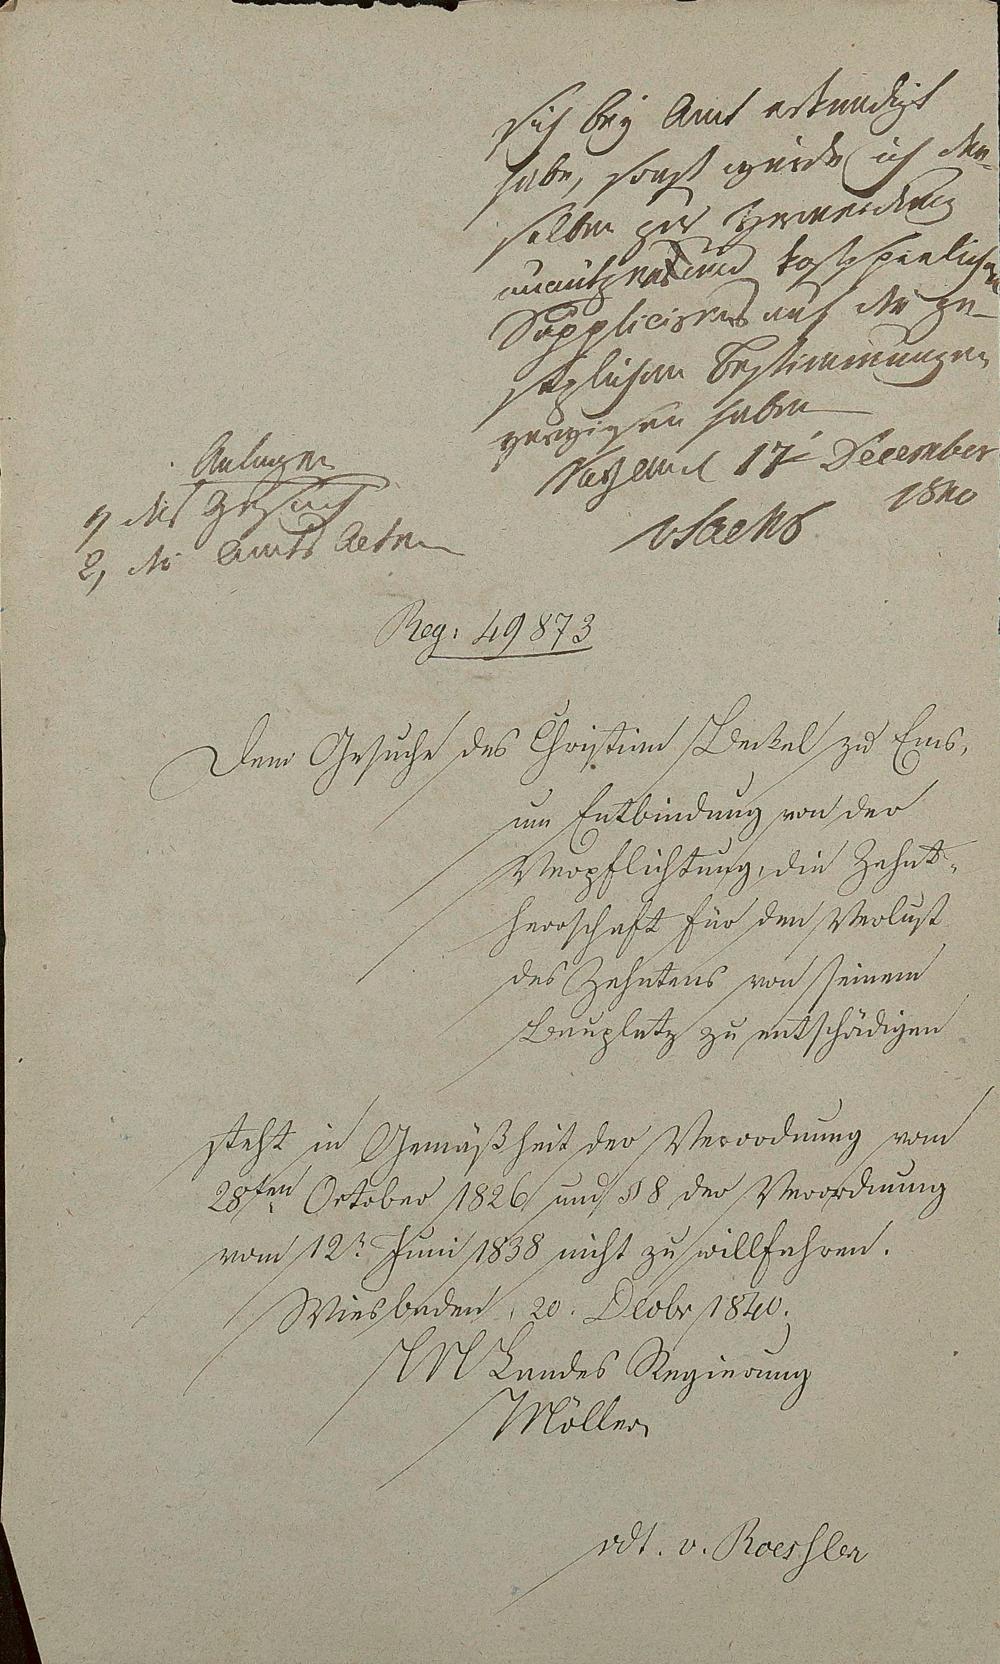 sich bey Amt erkundigt
habe, sonst würde ich den-
selben zur Vermeidung
unnützen und kostspieligen
Supplicirens auf die ge-
setzlichen Bestimmungen
verwiesen haben
Nassau d 17t December
1840
Anlagen
1, das Gesuch
2, die Amts Acten
Reg: 49873
Dem Gesuche des Christian Beckel zu Ems,
um Entbindung von der
Verpflichtung, die Zehnt-
herrschaft für den Verlust
des Zehntens von seinem
Bauplatz zu entschädigen
steht in Gemäßheit der Verordnung vom
28ten October 1826 und § 8 der Verordnung
vom 12t Juni 1838 nicht zu willfahren.
Wiesbaden, 20. Decbr 1840.
HN Landes Regierung
Möller
vdt. v. Roessler